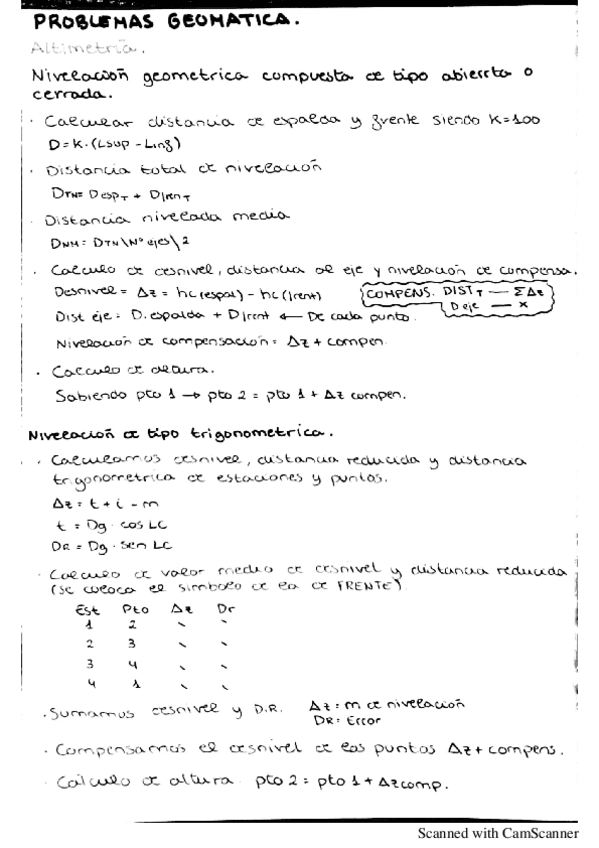 PROBLEMAS GEOMATICA.
Altimetría.
Nivelación geometrica compuesta de tipo abierta o
cerrada.
· Calcular distancia de espalda y frente siendo K=100
D=K·(Lsup - Linf)
· Distancia total de nivelación
DTN= D espT + D frenT
· Distancia nivelada media
DNM= DTN\Nº ejes\2
· Calculo de desnivel, distancia al eje y nivelación de compensa.
Desnivel = Δz = hc(espal) - hc(frent)
COMPENS. DIST T — ΣΔz
D eje — x
Dist eje = D. espalda + D frent ← De cada punto.
Nivelación de compensación = Δz + compen.
· Calculo de altura.
Sabiendo pto 1 → pto 2 = pto 1 + Δz compen.
Nivelación de tipo trigonometrica.
· Calculamos desnivel, distancia reducida y distancia
trigonometrica de estaciones y puntos.
Δz = t + i - m
t = Dg · cos LC
DR = Dg · sen LC
· Calculo de valor medio de desnivel y distancia reducida
(se coloca el simbolo de la de FRENTE)
Est Pto Δz Dr
1 2 \ \
2 3 \ \
3 4 \ \
4 1 \ \
· Sumamos desnivel y D.R. Δz = m de nivelación
DR = Error
· Compensamos el desnivel de los puntos Δz + compens.
· Calculo de altura pto 2 = pto 1 + Δz comp.
Scanned with CamScanner